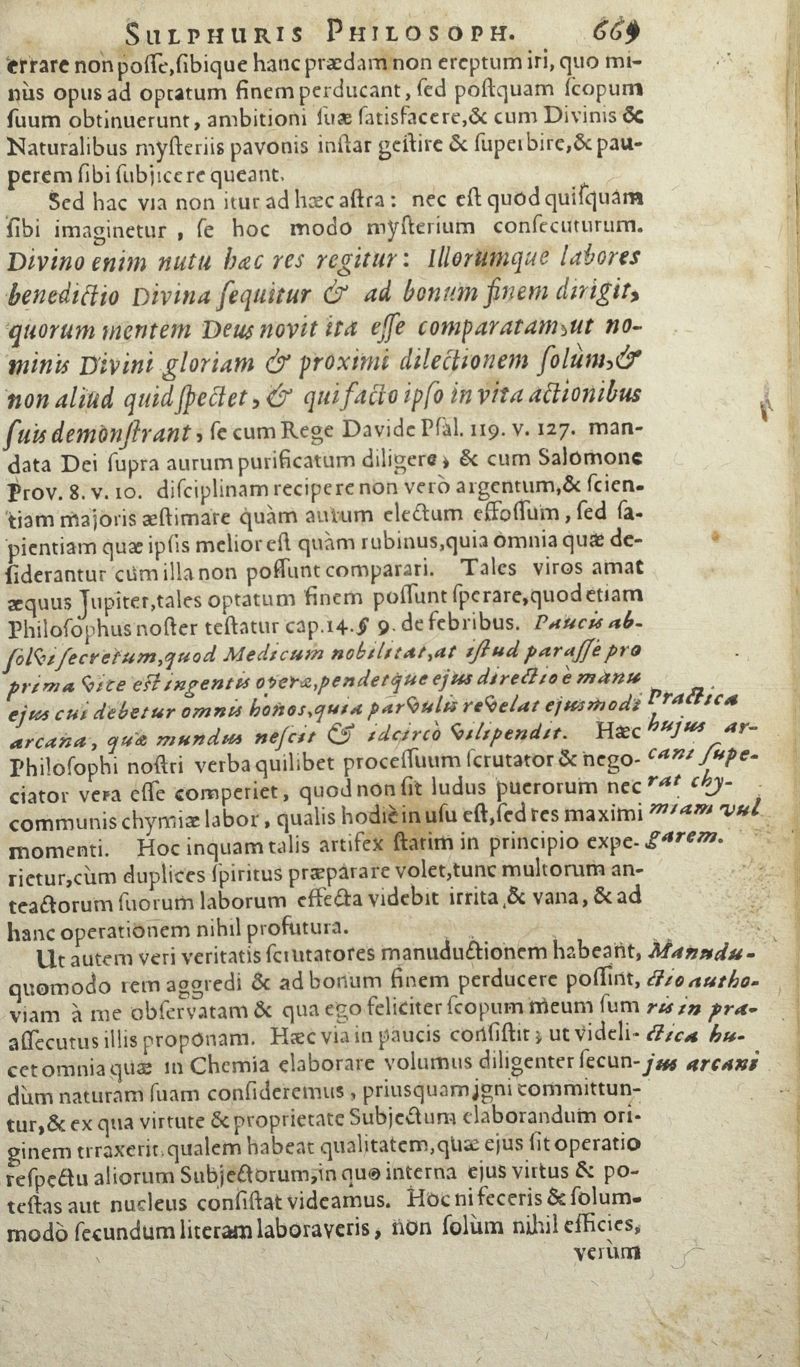 SULPHURIS PHILOSOPH. 669
errare non posse,sibique hanc prædam non ereptum iri, quo mi-
nùs opus ad optatum finem perducant, sed postquam scopum
suum obtinuerunt, ambitioni suæ satisfacere,& cum Divinis &
Naturalibus mysteriis pavonis instar gestire & superbire,& pau-
perem sibi subjicere queant.
Sed hac via non itur ad hæc astra: nec est quòd quisquàm
sibi imaginetur , se hoc modo mysterium consecuturum.
Divino enim nutu hæc res regitur: Illorumque labores
benedictio Divina sequitur & ad bonum finem dirigit,
quorum mentem Deus novit ita esse comparatam,ut no-
minis Divini gloriam & proximi dilectionem solùm,&
non aliud quid spectet, & qui facto ipso in vita actionibus
suis demonstrant, se cum Rege Davide Psal. 119. v. 127. man-
data Dei supra aurum purificatum diligere, & cum Salomone
Prov. 8. v. 10. disciplinam recipere non verò argentum,& scien-
tiam majoris æstimare quàm aurum electum effossum, sed sa-
pientiam quæ ipsis melior est quàm rubinus,quia omnia quæ de-
siderantur cùm illa non possunt comparari. Tales viros amat
æquus Jupiter,tales optatum finem possunt sperare,quod etiam
Philosophus noster testatur cap.14.§ 9. de febribus. Paucis ab-
solvi secretum,quod Medicum nobilitat,at istud parasse pro
prima vice est ingentis operæ,pendetque ejus directio è manu
ejus cui debetur omnis honos,quia parvulis revelat ejusmodi
arcana, quæ mundus nescit & idcirco vilipendit. Hæc
Philosophi nostri verba quilibet processuum scrutator & nego-
ciator vera esse comperiet, quod non sit ludus puerorum nec
communis chymiæ labor, qualis hodiè in usu est,sed res maximi
momenti. Hoc inquam talis artifex statim in principio expe-
rietur,cùm duplices spiritus præparare volet,tunc multorum an-
teactorum suorum laborum effecta videbit irrita,& vana, & ad
hanc operationem nihil profutura.
Practica
hujus ar-
cani supe-
rat chy-
miam vul
garem.
Ut autem veri veritatis scrutatores manuductionem habeant,
quomodo rem aggredi & ad bonum finem perducere possint,
viam à me observatam & qua ego feliciter scopum meum sum
assecutus illis proponam. Hæc via in paucis consistit; ut videli-
cet omnia quæ in Chemia elaborare volumus diligenter secun-
dùm naturam suam consideremus, priusquam igni committun-
tur,& ex qua virtute & proprietate Subjectum elaborandum ori-
ginem traxerit,qualem habeat qualitatem,quæ ejus sit operatio
respectu aliorum Subjectorum,in quo interna ejus virtus & po-
testas aut nucleus consistat videamus. Hoc ni feceris & solum-
modò secundum literam laboraveris, non solùm nihil efficies,
verùm
Manudu-
ctio autho-
ris in pra-
ctica hu-
jus arcani